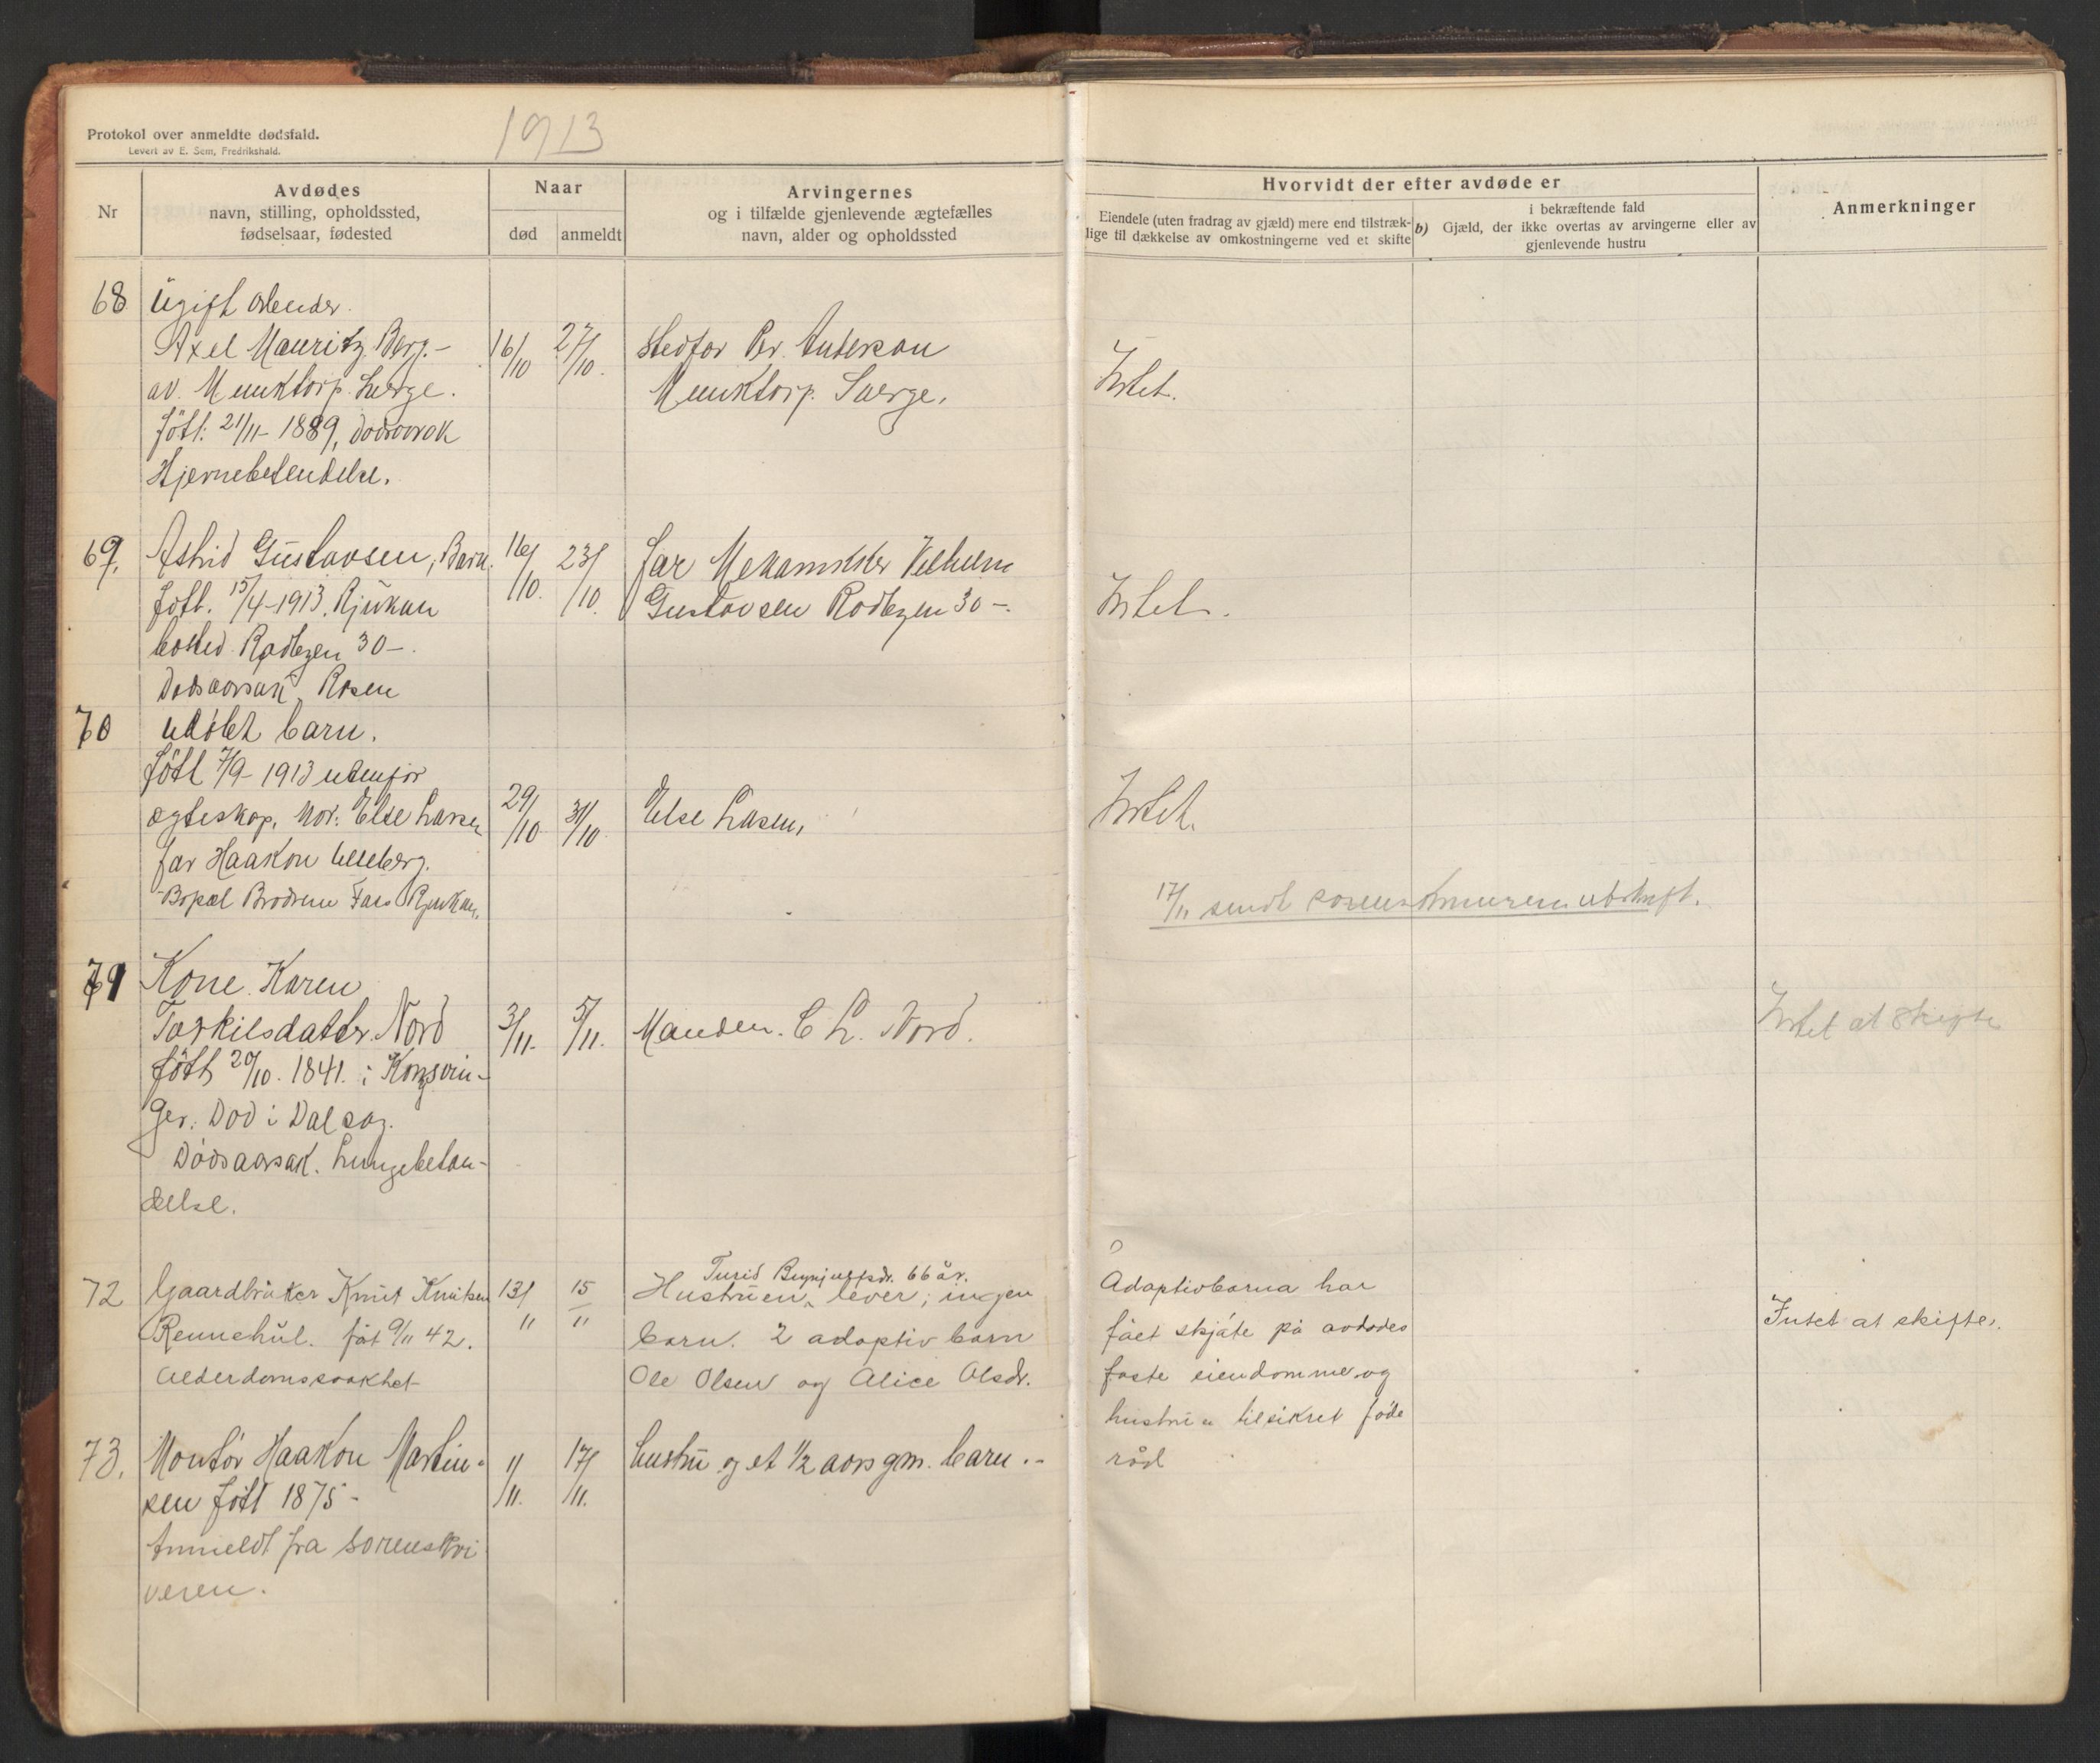 1913
Protokol over anmeldte dødsfald.
Levert av E. Sem, Fredrikshald.
Nr
Avdødes
navn, stilling, opholdssted,
fødselsaar, fødested
Naar
død
anmeldt
Arvingernes
og i tilfælde gjenlevende ægtefælles
navn, alder og opholdssted
Hvorvidt der efter avdøde er
Eiendele (uten fradrag av gjæld) mere end tilstræk-
lige til dækkelse av omkostningerne ved et skifte
i bekræftende fald
b) Gjæld, der ikke overtas av arvingerne eller av
gjenlevende hustru
Anmerkninger
68 Ugift
Axel Mauritz Berg.-
av Munktorp. Sverge.
født: 21/11- 1889, Dødsaarsak
Hjernebetendelse.
16/10 27/10.
Stedfar Per Anderson
Munktorp. Sverge.
Intet.
69. Astrid Gustavsen, Barn.
født. 15/4-1913. Rjukan
bosted Rødbyen 30-.
Dødsaarsak
16/10. 23/10.
far Mekanikker Vilhelm
Gustavsen Rødbyen 30-.
Intet.
70 udøbt barn.
født 7/9- 1913 utenfor
ægteskap, Mor: Else Larsen
far Haakon Ulleberg.
Bopæl Brødrene Rjukan.
29/10 31/10
Else Larsen,
Intet.
17/11 sendt sorenskriveren utskrift.
71 Kone Karen
Torkilsdatter Nord
født 20/10. 1841. i Kongsvin-
ger. Død i Dal sog.
Dødsaarsak. Lungebetæn-
delse.
3/11. 5/11.
Manden. C L. Nord.
Intet at skifte
72 Gaardbruker Knut Knutsen
Rennehul. føt 9/11 42.
Alderdomssvakhet
13/11 15/11
Turid Brynjulfsdr. 66 år.
Hustruen lever; ingen
barn. 2 adoptiv barn
Ole Olsen og Alice Olsdr.
Adoptivbarna har
fået skjøte på avdødes
faste eiendomme og
hustru u tilsikret føde
råd
Intet at skifte.
73. Montør Haakon Martin-
sen født 1875-
Anmeldt fra sorenskri
veren.
1/11. 17/11.
hustru og et 1/2 aars gm. barn.-